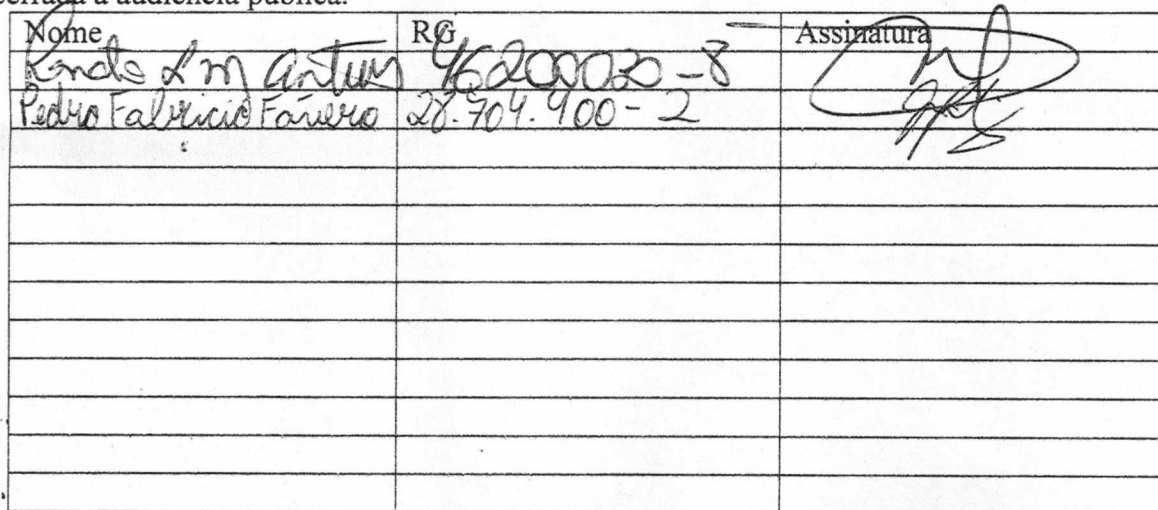 a audiência pública.
Nome RG Assinatura
L M 46200020-8
Pedro Fabricio Favero 28.704.900-2